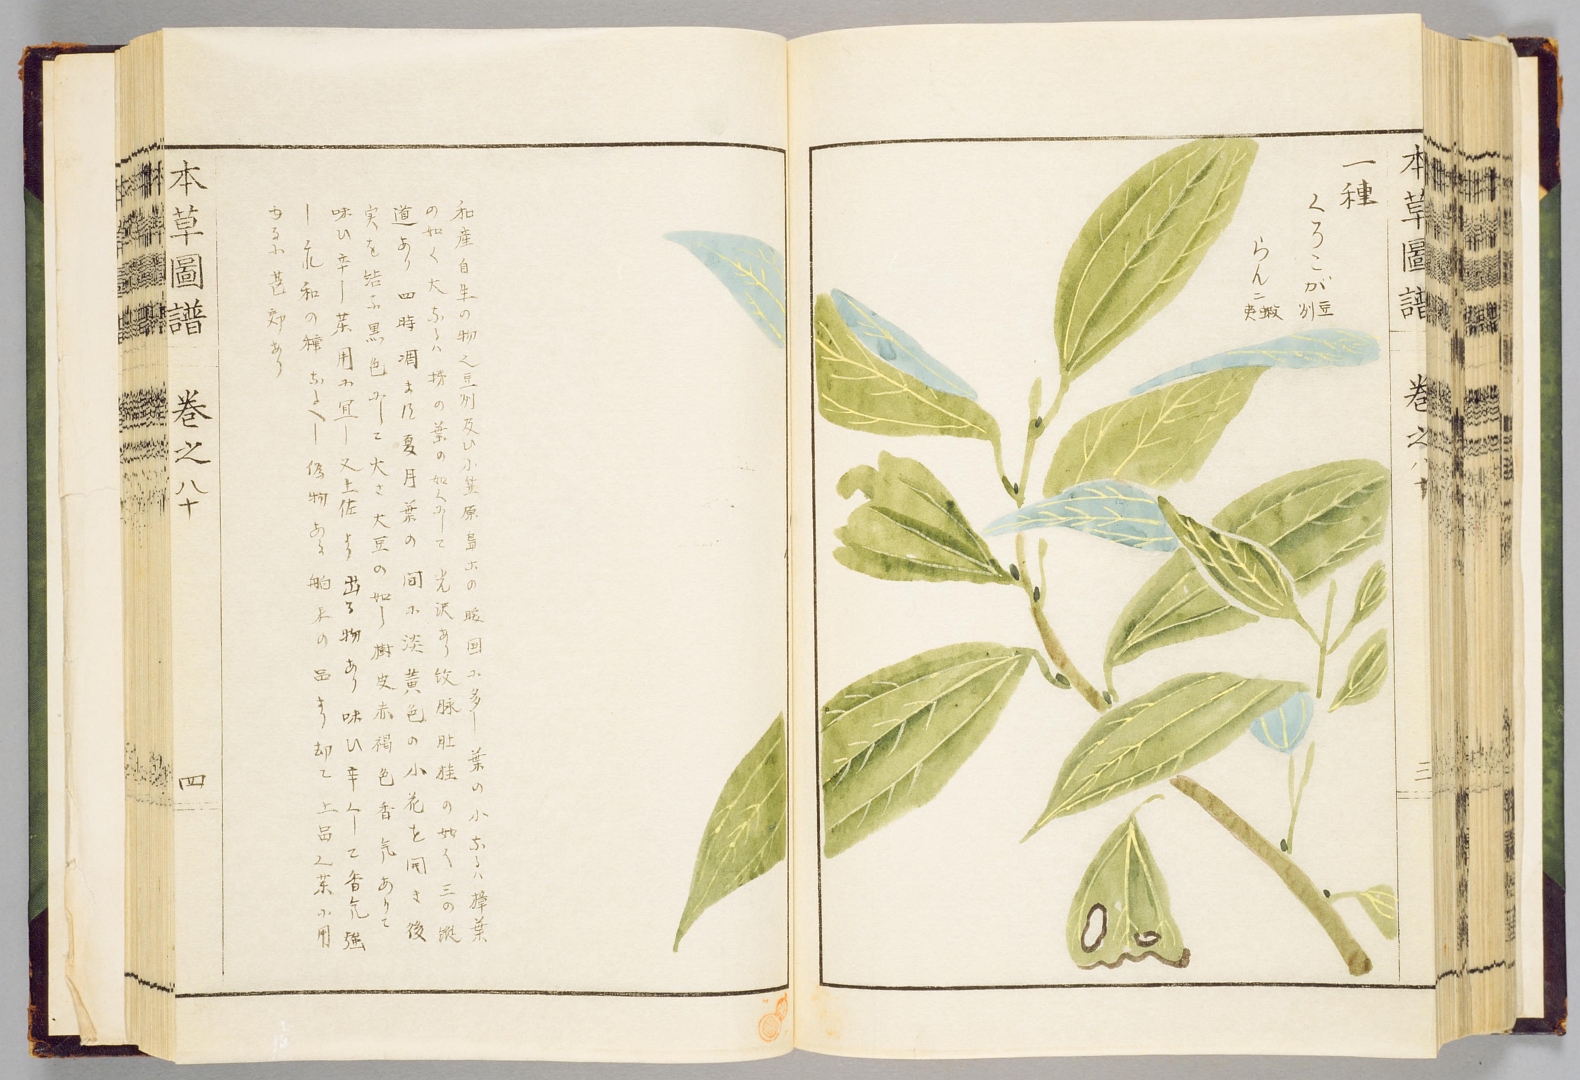 本草圖譜 巻之八十 三
一種
くろこが 豆州
らんこ 蝦夷
和産自生の物之豆州及ひ小笠原島ホの暖国に多し葉の小なるハ樟葉
の如く大なるハ
の葉の如くにして光沢あり紋脉肚桂の如く三の縦
道あり四時凋ます夏月葉の間に淡黄色の小花を開き後
実を結ふ黒色にして大さ大豆の如し樹皮赤褐色香気ありて
味ひ辛し薬用に宜し又土佐より出る物あり味ひ辛くして香気強
し
和の種なるへし
物あり舶来の
品より却て上品之薬に用
甚
あり
本草圖譜 巻之八十 四